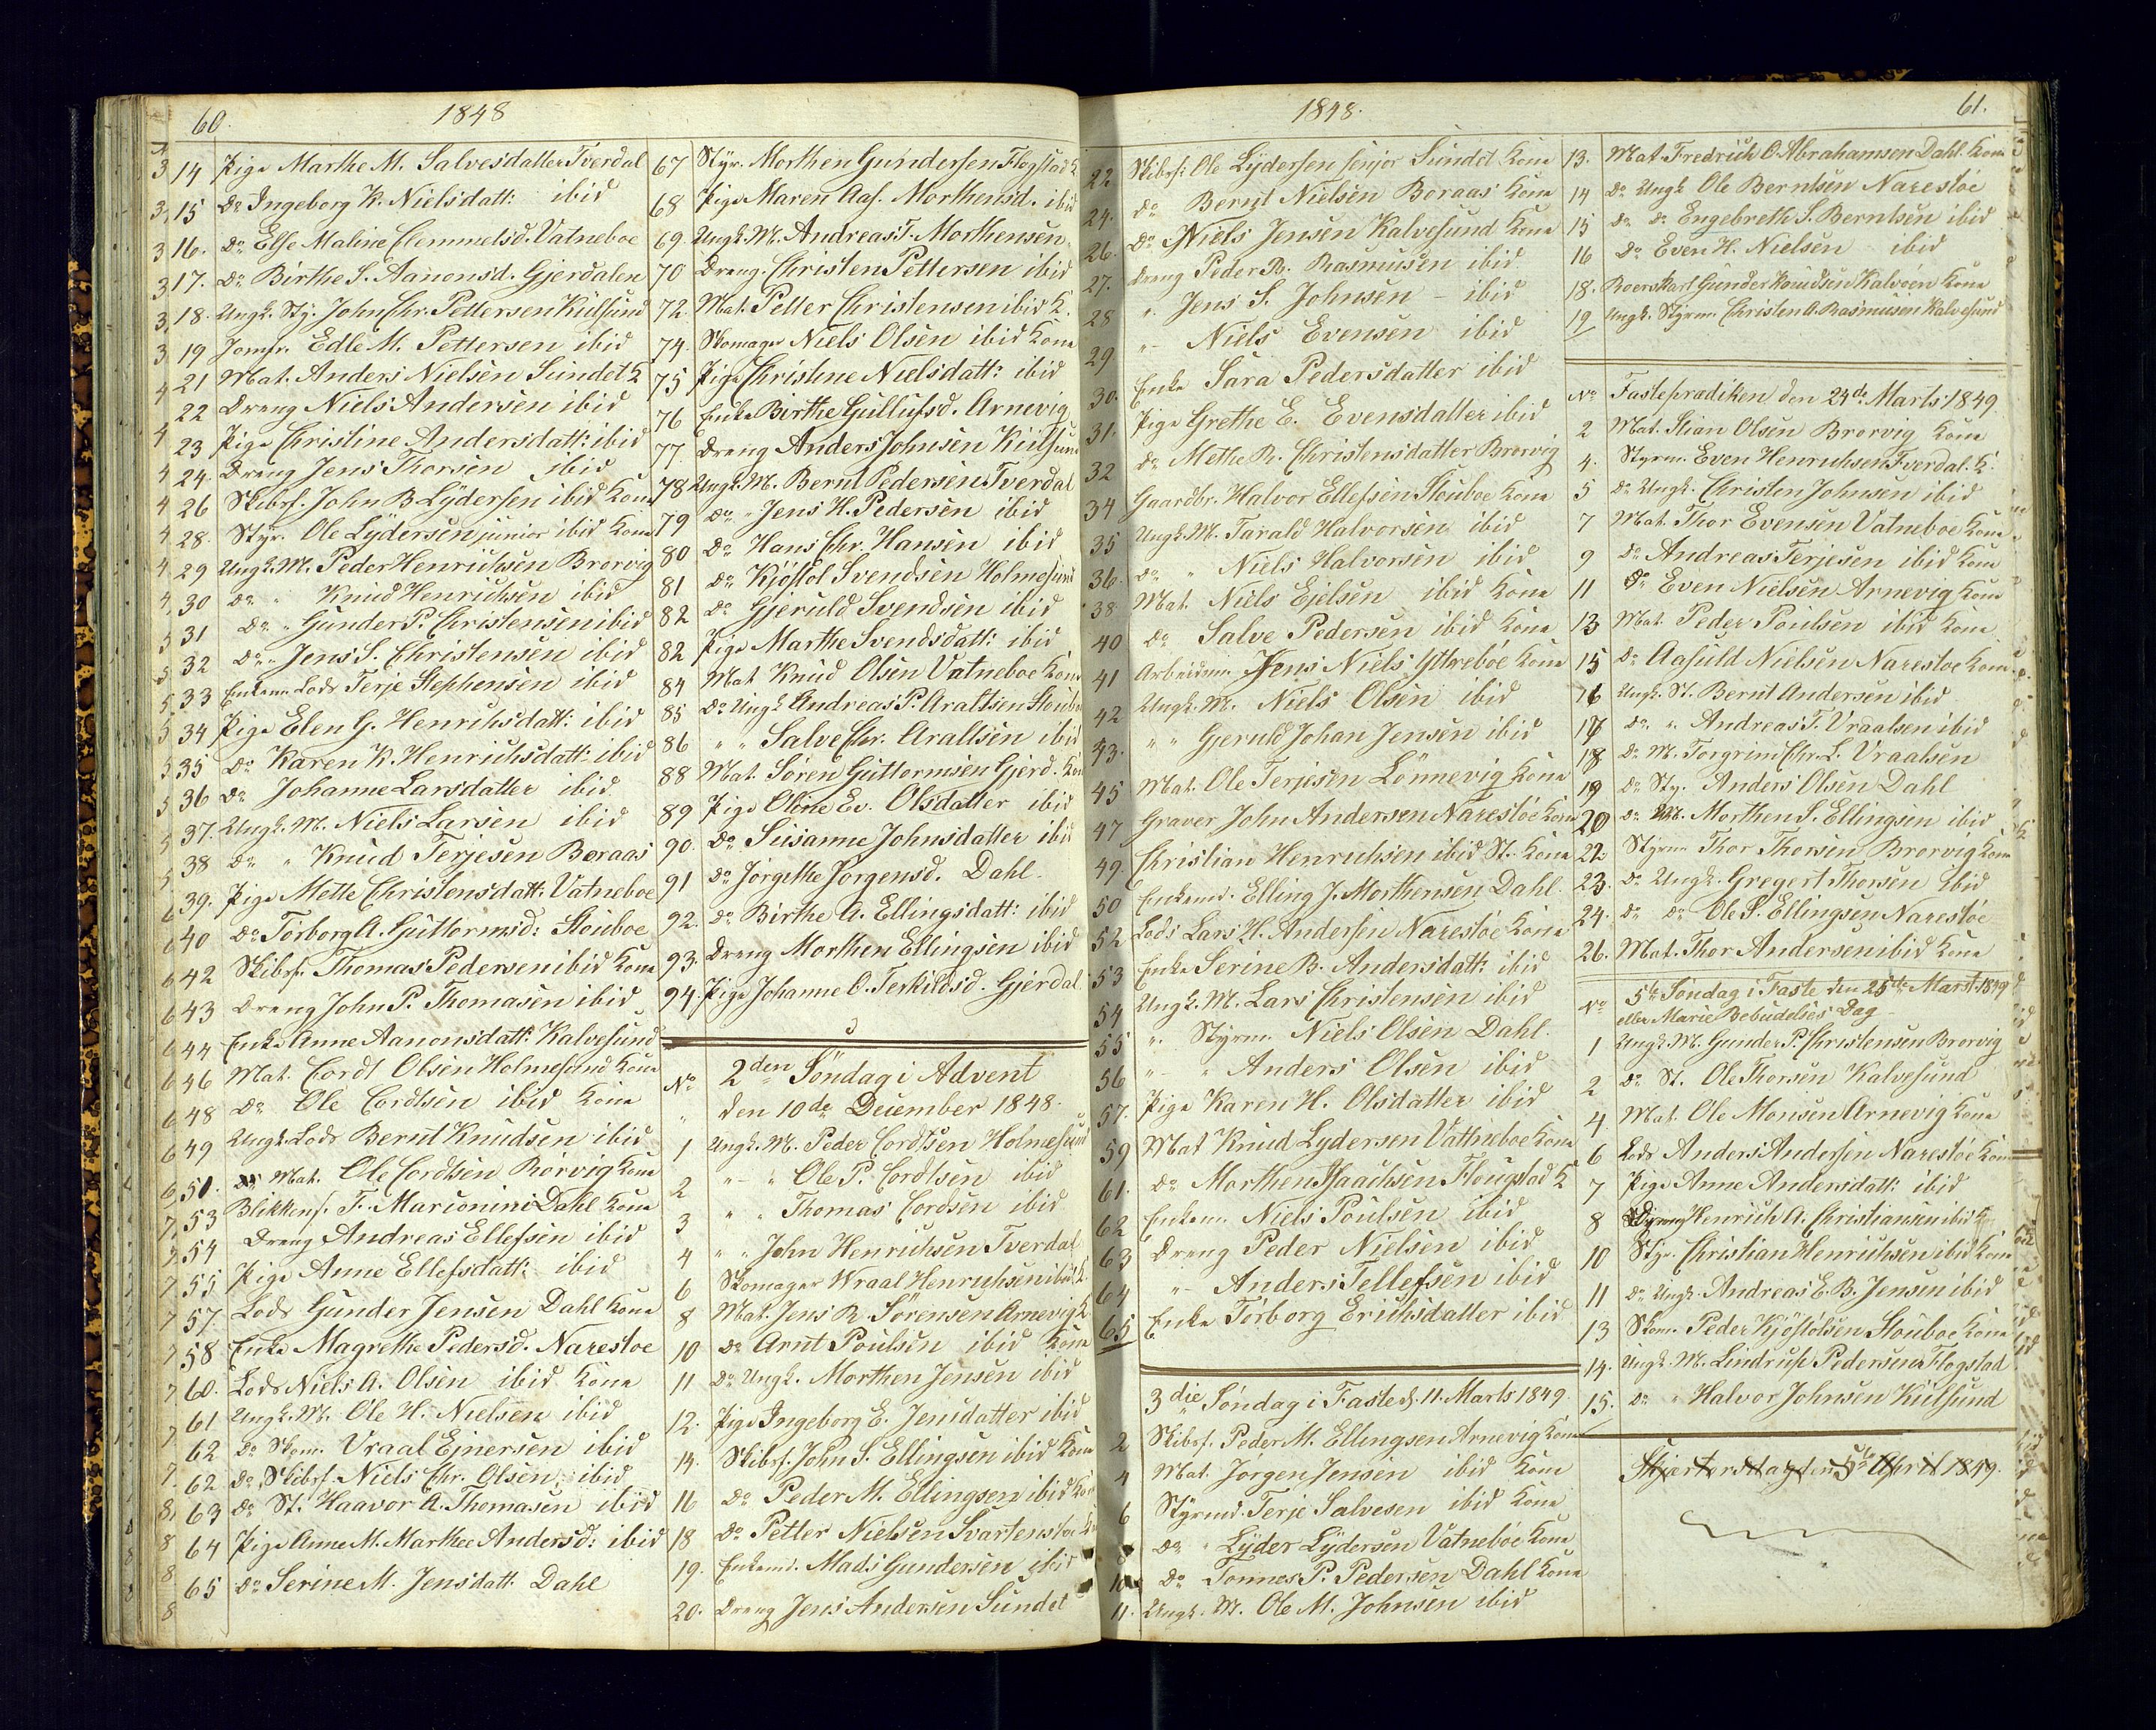 60.
1848
14 Pige Marthe M. Salvesdatter Tverdal
15 Do Ingeborg K. Nielsdatt: ibid
16. Do Else Maline Clemmetsd. Vatneboe
17. Do Birthe S. Aanonsd. Gjerdalen
18. Ungk. Sty. John Chr. Pettersen Külsund
19 Jomfr. Edle M. Pettersen ibid
21 Mat. Anders Nielsen Sundet K
22 Dreng Niels Andersen ibid
23 Pige Christine Andersdatt: ibid
24. Dreng Jens Thorsen ibid
26 Skibsf. John B Lÿdersen ibid Kone
28. Styr. Ole Lÿdersen junior ibid Kone
29 Ungk. M. Peder Henrichsen Brørvig
30 Do " Knud Henrichsen ibid
31 Do " Gunder P. Christensen ibid
32 Do " Jens S. Christensen ibid
33 Enkem. Lods Terje Stephensen ibid
34 Pige Elen G. Henrichsdatt: ibid
35 Do Karen K. Henrichsdatt: ibid
36 Do Johanne Larsdatter ibid.
37. Ungk. M. Niels Larsen ibid
38 Do " Knud Terjesen Boraas
39. Pige Mette Christensdatt: Vatneboe
40 Do Torborg A. Guttormsd: Stouboe
42 Skibsf. Thomas Pedersen ibid Kone
43 Dreng John P. Thomasen ibid
44 Enke Anne Aanonsdatt: Kalvesund
46 Mat. Cordt Olsen Holmesund Kone
48 Do Ole Cordtsen ibid Kone
49 Ungk. Lods Bernt Knudsen ibid
51. Mat. Ole Cordtsen Rørvig Kone
53 Blikkensl. F. Marionini Dahl Kone
54 Dreng Andreas Ellefsen ibid
55 Pige Anne Ellefsdatt: ibid
57. Lods Gunder Jensen Dahl Kone
58 Enke Magrethe Pedersd. Narestoe
60. Lods Niels A. Olsen ibid Kone
61 Ungk. M. Ole H. Nielsen ibid
62 Do Skom. Vraal Ejnersen ibid
62 Do Skibsf. Niels Chr. Olsen ibid
63 Do St. Haavor A. Thomasen ibid
64 Pige Anne M. Marthee Andersd: ibid
65 Do Serine M. Jensdatt. Dahl
67 Styr. Morthen Gundersen Flogstad K
68 Pige Maren Aas. Morthensd. ibid
69. Ungk. M. Andreas T. Morthensen
70 Dreng. Christen Pettersen ibid
72. Mat. Petter Christensen ibid K.
74. Skomager Niels Olsen ibid Kone
75 Pige Christine Nielsdatt: ibid
76 Enke Birthe Gullufsd. Arnevig
77. Dreng Anders Johnsen Kiilsund
78 Ungk. M. Bernt Pedersen Tverdal
79 Do " Jens H. Pedersen ibid
80 Do Hans Chr. Hansen ibid
81 Do Kjøstol Svendsen Holmesund
82 Do Gjeruld Svendsen ibid
82 Pige Marthe Svendsdatt: ibid
84 Mat Knud Olsen Vatneboe Kone
85 Do Ungk Andreas P. Araltsen Stouboe
86 " " Salve Chr. Araltsen ibid
88 Mat. Søren Guttormsen Gjerd. Kone
89 Pige Oline Ev. Olsdatter ibid
90. Do Susanne Johnsdatter ibid
91 Do Jørgethe Jørgensd. Dahl.
92. Do Birthe A. Ellingsdatt: ibid
93. Dreng Morthen Ellingsen ibid
94. Pige Johanne O. Terkildsd. Gjerdal
No 2den Søndag i Advent
den 10de December 1848.
1 Ungk. M. Peder Cordtsen Holmesund
2 " " Ole P. Cordtsen ibid
3 " " Thomas Cordsen ibid
4 " " John Henrichsen Tverdal
6 Skomager Wraal Henrichsen ibid K.
8 Mat. Jens R. Sørensen Arnevig K
10 Do Arnt Poulsen ibid Kone
11 Do Ungk. Morthen Jensen ibid
12. Pige Ingeborg E. Jensdatter ibid
14. Skibsf. John S. Ellingsen ibid Kone
16 Do Peder M. Ellingsen ibid Kone
18 Do Petter Nielsen Svartenstoe
19. Enkemd. Mads Gundersen ibid
20. Dreng Jens Andersen Sundet
1848.
61.
22 Skibsf: Ole Lÿdersen senjor Sundet Kone
24. Do Bernt Nielsen Boraas Kone
26. Do Niels Jensen Kalvesund Kone
27. Dreng Peder R. Rasmusen ibid
28 " Jens S. Johnsen - ibid
29. " Niels Evensen ibid
30. Enke Sara Pedersdatter ibid
31. Pige Grethe E. Evensdatter ibid
32 Do Methe R. Christensdatter Brørvig
34 Gaardbr. Halvor Ellefsen Stouboe Kone
35 Ungk. M. Tarald Halvorsen ibid
36. Do " Niels Halvorsen ibid
38 Mat. Niels Ejelsen ibid Kone
40 Do Salve Pedersen ibid Kone
41 Arbeidsm. Jens Niels. Yttreboe Kone
42 Ungk. M. Niels Olsen ibid
43. " " Gjeruld Johan Jensen ibid
45 Mat. Ole Terjesen Lønnevig Kone
47 Graver John Andersen Narestøe Kone
49. Christian Henrichsen ibid St. Kone
50 Enkemd. Elling J. Morthensen Dahl.
52 Lods Lars H. Andersen Narestøe Kone
53 Enke Serine B. Andersdatt: ibid
54 Ungk. M. Lars Christensen ibid
55 " Styrm. Niels Olsen Dahl.
56 " " Anders Olsen ibid
57. Pige Karen H. Olsdatter ibid
59 Mat Knud Lydersen Vattneboe Kone
61. Do Morthen Isaachsen Flougstad K
62 Enkem. Niels Poulsen ibid
63 Dreng Peder Nielsen ibid
64 " Anders Tellefsen ibid
65 Enke Torborg Erichsdatter ibid
3die Søndag i Faste d. 11. Marts 1849.
2 Skibsf. Peder M. Ellingsen Arnevig Kone
4 Mat. Jørgen Jensen ibid Kone
6 Styrmd. Terje Salvesen ibid Kone
Do " Lÿder Lÿdersen Vatneboe Kone
10 Do Tønnes P. Pedersen Dahl Kone
11. Ungk. M. Ole M. Johnsen ibid
13. Mat. Fredrich O. Abrahamsen Dahl. Kone
14 Do Ungk Ole Berntsen Narestøe
15 Do Do Engebreth S. Berntsen ibid
16 Do Even H. Nielsen ibid
18. Gunder Knudsen Kalvøen Kone
19 Ungk. Styrm. Christen A. Rasmusen Kalvesund
No Fasteprædiken den 24de Marts 1849.
2 Mat. Stian Olsen Brørvig Kone
4. Styrm. Even Henrichsen Tverdal. K.
5 Do Ungk. Christen Johnsen ibid
7 Mat. Thor Evensen Vatneboe Kone
9 Do Andreas Terjesen ibid Kone
11 Do Even Nielsen Arnevig Kone
13 Mat. Peder Poulsen ibid Kone
15 Do Aasuld Nielsen Narestøe Kone
16 Ungk. St. Bernt Andersen ibid
17 Do " Andreas T. Vraalsen ibid
18 Do M. Torgrim Chr. L. Vraalsen
19 Do Sty. Anders Olsen Dahl
20 Do M. Morthen S. Ellingsen ibid
22 Styrm Thor Thorsen Brørvig Kone
23. Do Ungk. Gregert Thorsen ibid
24. Do Do Ole S. Ellingsen Narestøe
26. Mat. Thor Andersen ibid Kone
No 5te Søndag i Faste den 25de Mart. 1849
eller Marie Bebudelses Dag
1 Ungk. M. Gunder P. Christensen Brørvig
2 Do St. Ole Thorsen Kalvesund
4 Mat. Ole Monsen Arnevig Kone
6 Lods Anders Andersen Narestøe Kone
7 Pige Anne Andersdatt: ibid
8 Henrich A. Christiansen ibid
10 Styr. Christian Henrichsen ibid Kone
11 Do Ungk. Andreas E. B. Jensen ibid
13 Skom. Peder Kjøstolsen Stouboe Kone
14. Ungk. M. Lindrup Pedersen Flogstad
15. Do " Halvor Johnsen Kiilsund
Skjærtorsdag den 5te April 1849.